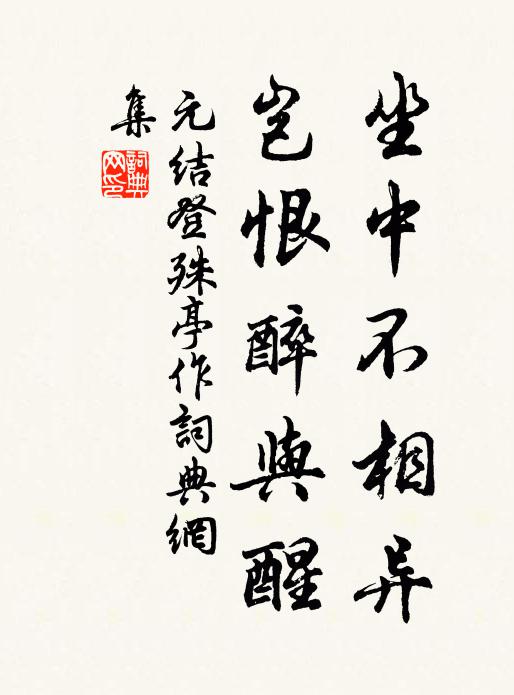 坐中不相异
岂恨醉與醒
元结登殊亭作詞典網
集
詞典网印